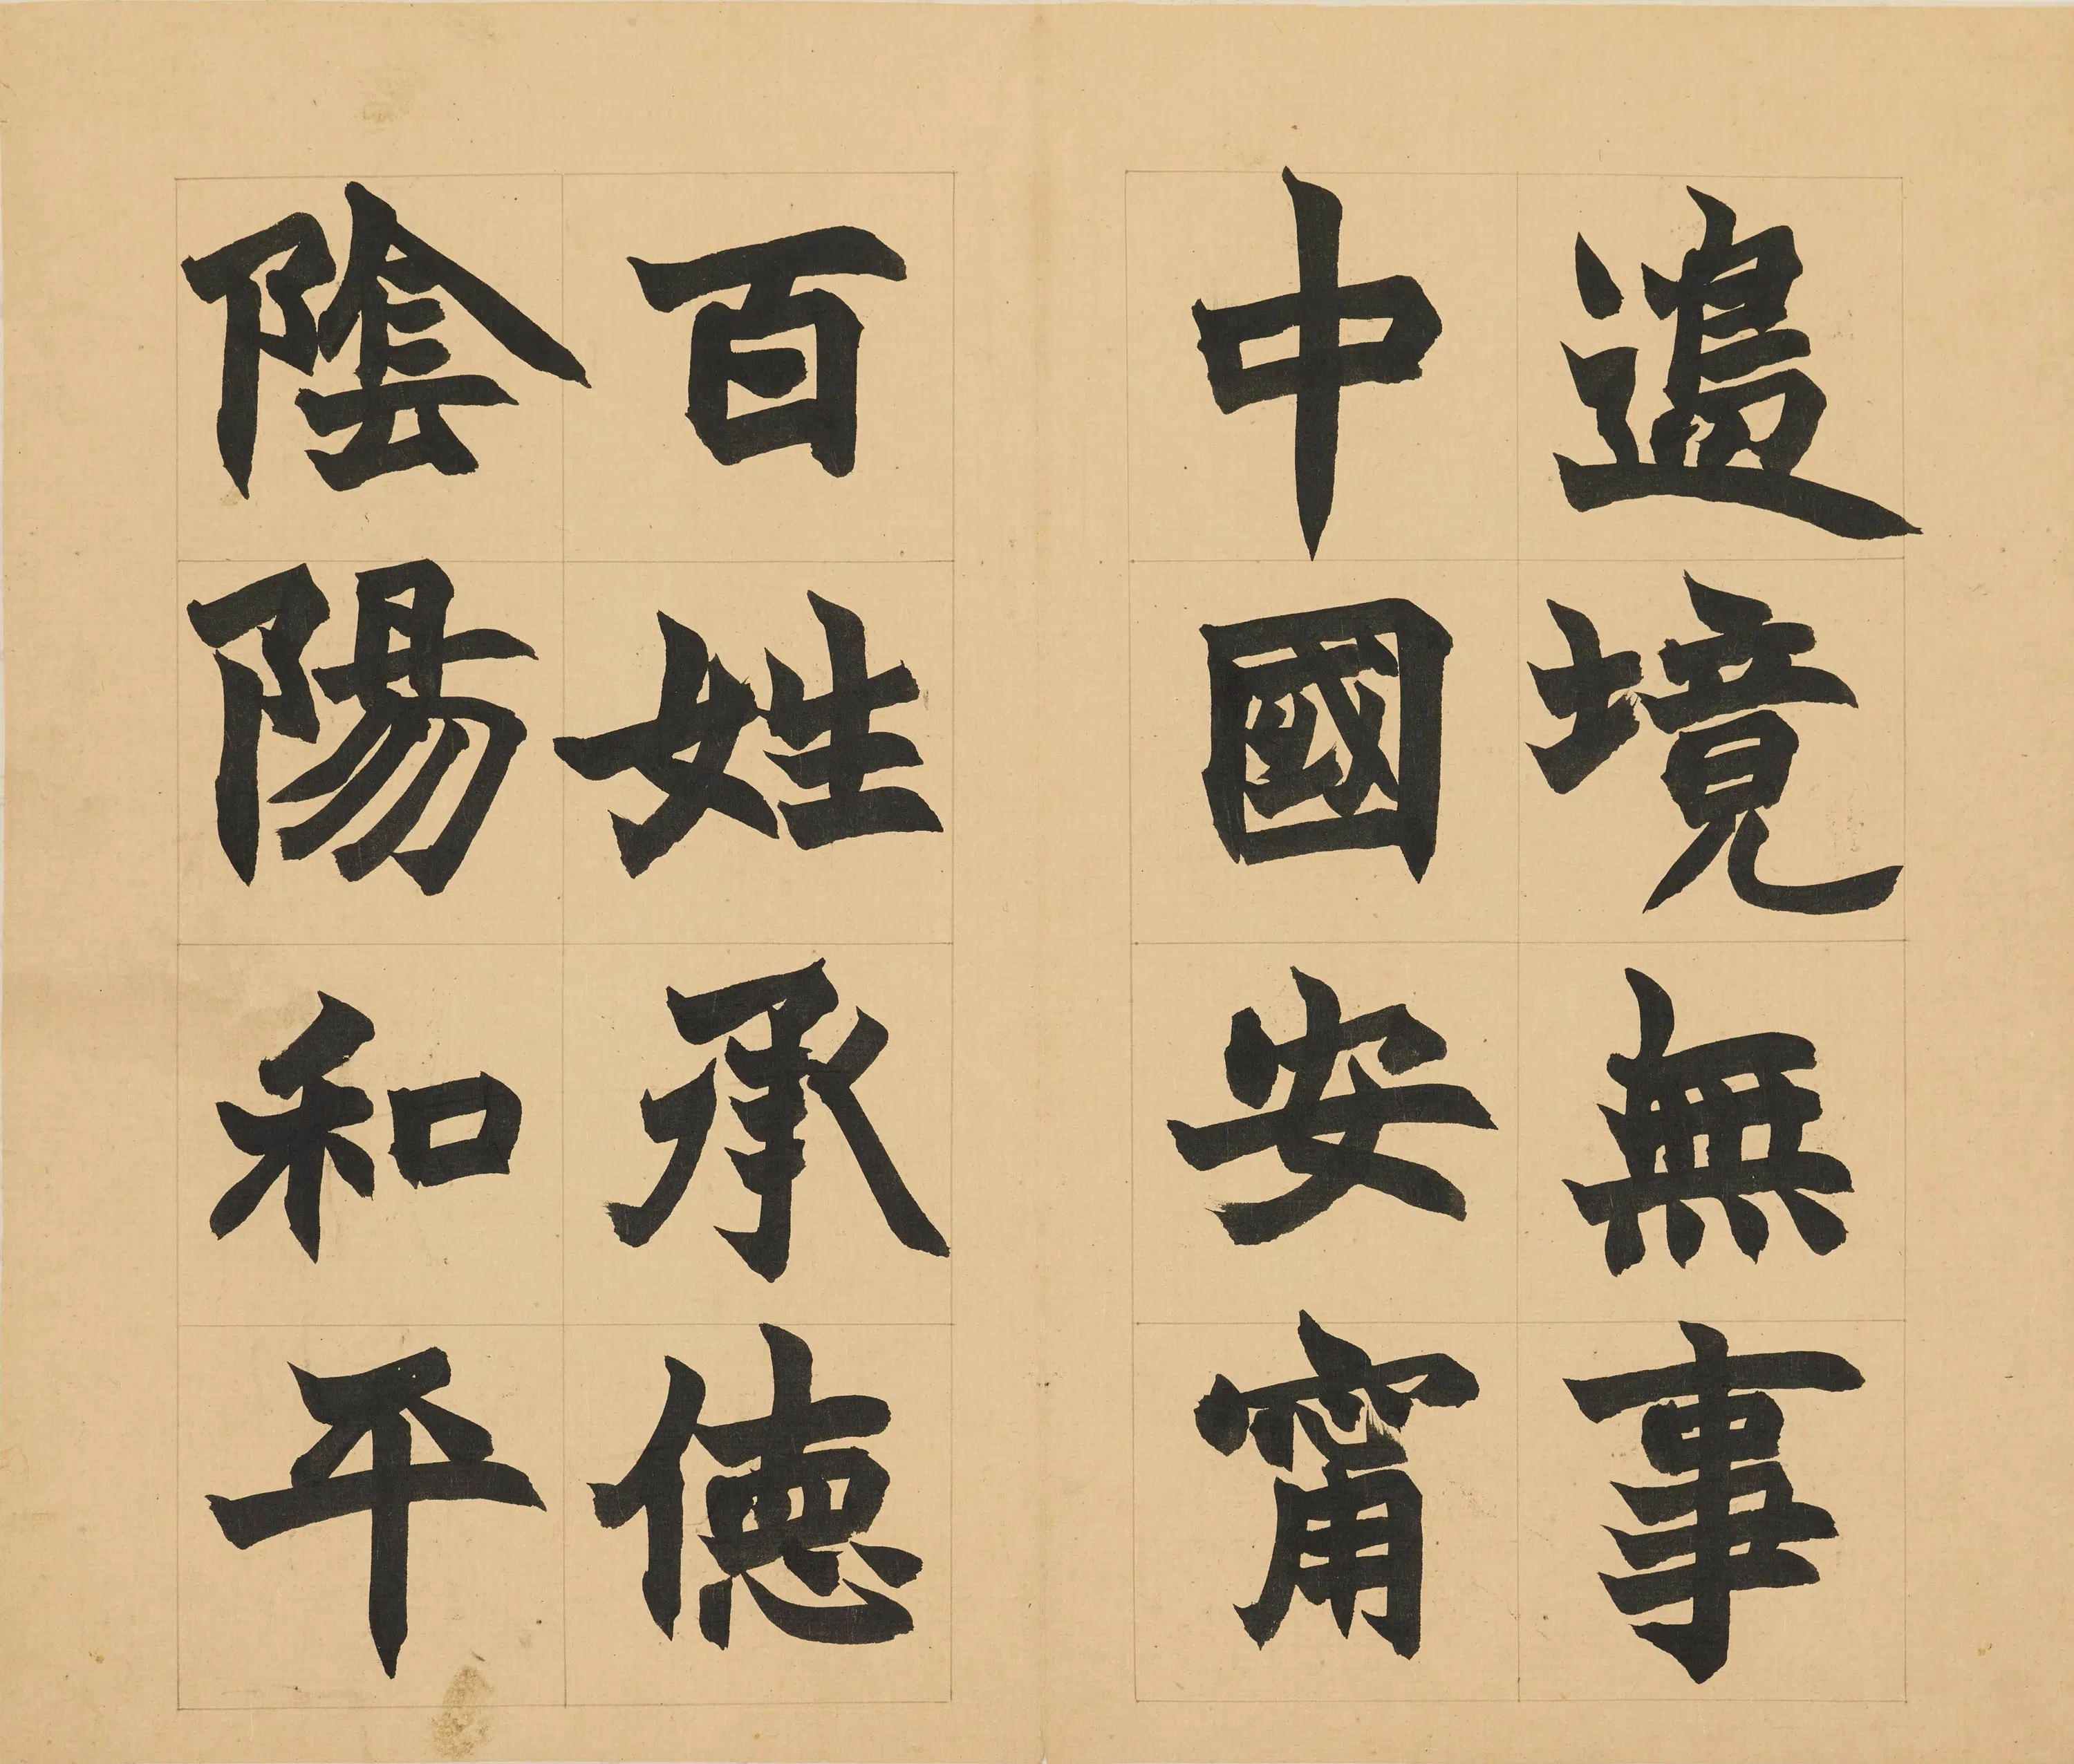 邉境無事
中國安甯
百姓承徳
陰陽和平